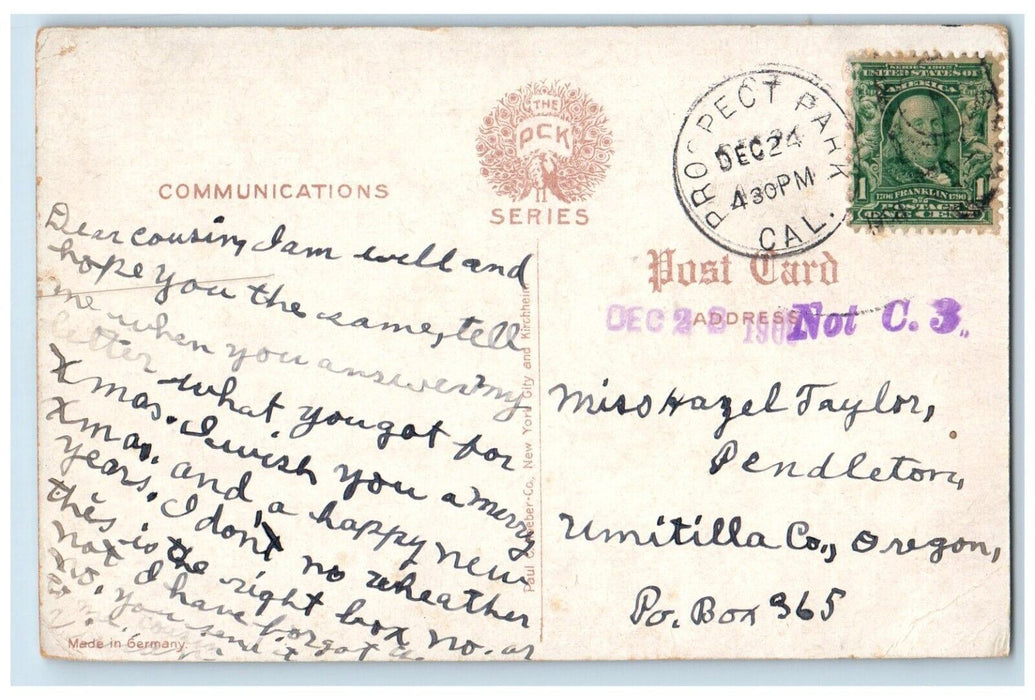 THE
PCK
SERIES
COMMUNICATIONS
PROSPECT PARK
DEC 24
430PM
CAL.
SERIES 1902
UNITED STATES OF
AMERICA
1 FRANKLIN 1
Post Card
ADDRESS
DEC 190
Not C. 3.
Dear cousin, I am well and
hope you the same, tell
me when you answer my
letter what you got for
Xmas. I wish you a merry
Xmas, and a happy new
years. I don't no wheather
this is the right box no. or
not I have forgot
no. you send it
Miss Hazel Taylor,
Pendleton,
Umitilla Co., Oregon,
Po. Box 365
New York City and Kirchheim
Made in Germany.